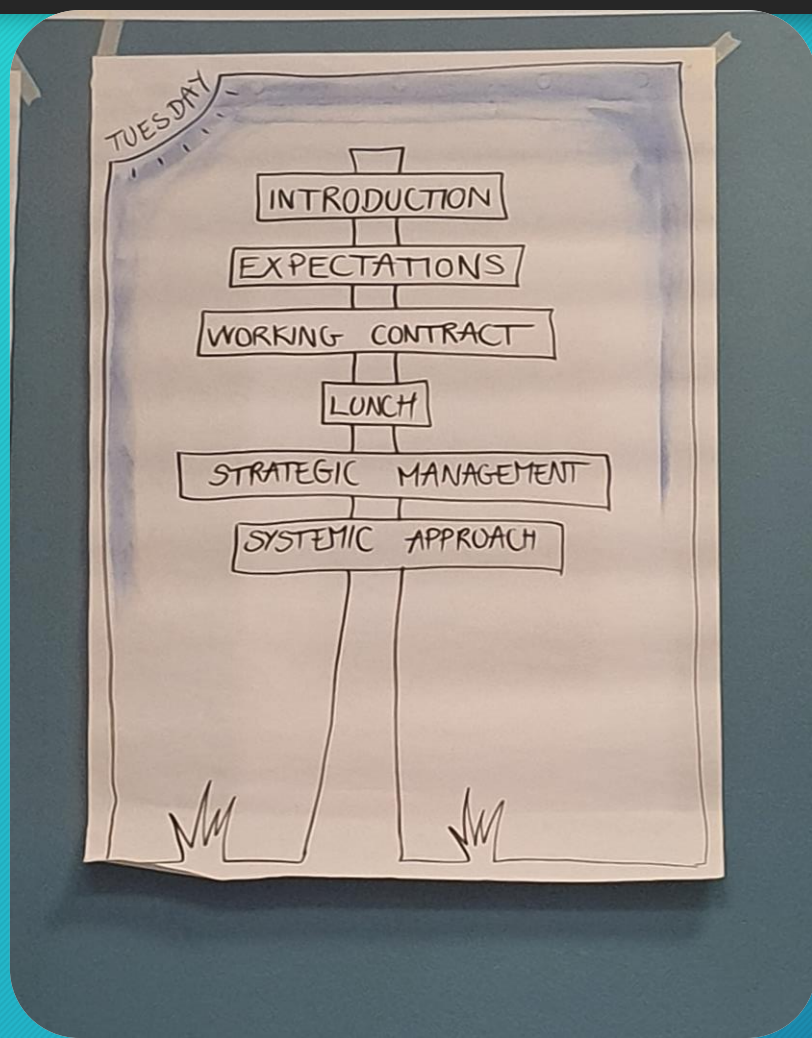 TUESDAY
INTRODUCTION
EXPECTATIONS
WORKING CONTRACT
LUNCH
STRATEGIC MANAGEMENT
SYSTEMIC APPROACH